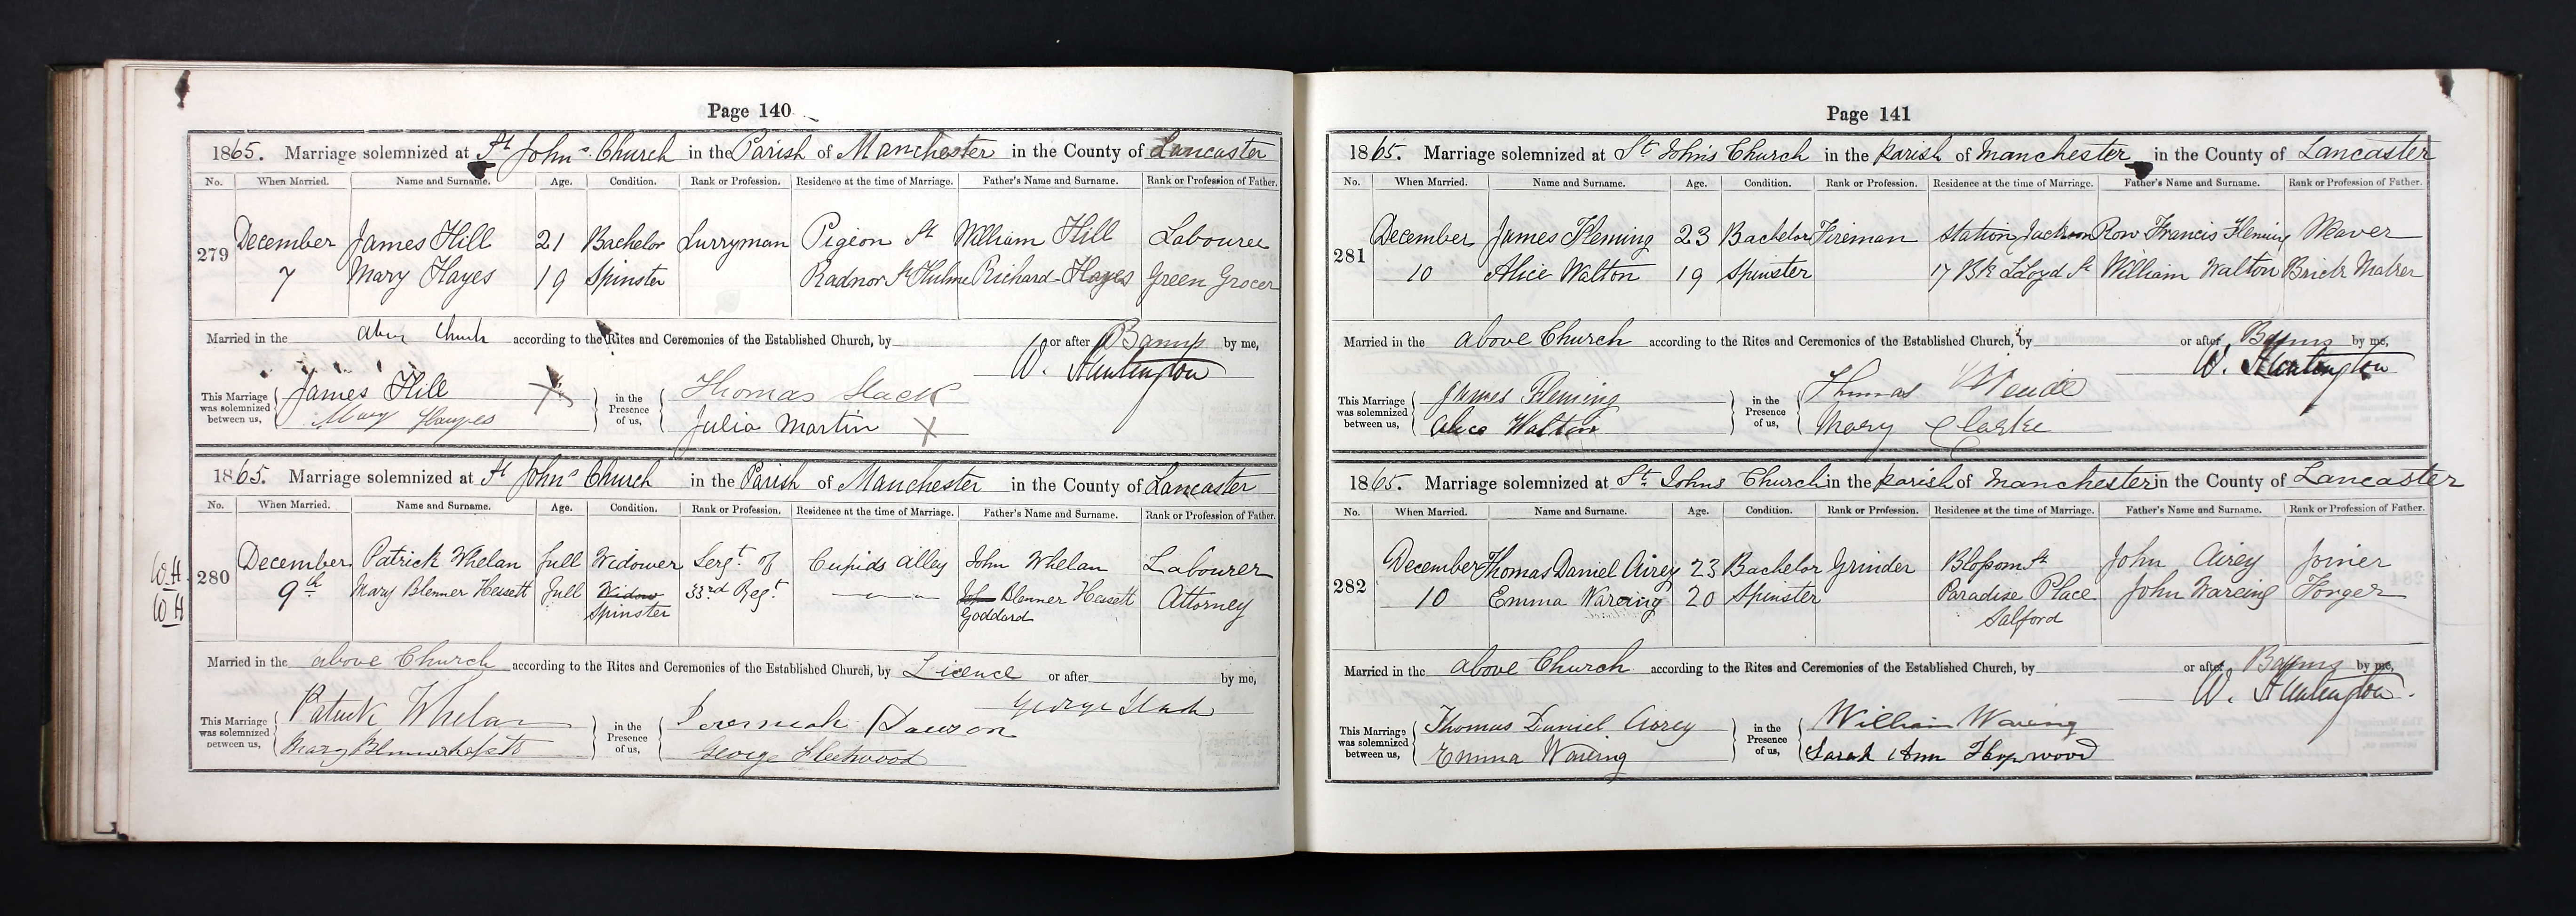 Page 140
1865. Marriage solemnized at St Johns Church in the Parish of Manchester in the County of Lancaster
No. When Married. Name and Surname. Age. Condition. Rank or Profession. Residence at the time of Marriage. Father's Name and Surname. Rank or Profession of Father.
279 December James Hill 21 Bachelor Lurryman Pigeon St William Hill Labourer
7 Mary Hayes 19 Spinster Radnor St Hulme Richard Hayes Green Grocer
Married in the above Church according to the Rites and Ceremonies of the Established Church, by or after Banns by me,
W. Huntington
This Marriage was solemnized between us, James Hill X in the Presence of us, Thomas Slack
Mary Hayes Julia Martin X
1865. Marriage solemnized at St Johns Church in the Parish of Manchester in the County of Lancaster
No. When Married. Name and Surname. Age. Condition. Rank or Profession. Residence at the time of Marriage. Father's Name and Surname. Rank or Profession of Father.
W.H. 280 December Patrick Whelan full Widower Sergt of Cupids Alley John Whelan Labourer
W H 9th Mary Blenner Hessett full Widow 33rd Regt Blenner Hessett Attorney
Spinster Goddard
Married in the above Church according to the Rites and Ceremonies of the Established Church, by Licence or after by me,
George
This Marriage was solemnized between us, Patrick Whelan in the Presence of us, Jeremiah Dawson
Mary Blennerhassett George Fleetwood
Page 141
1865. Marriage solemnized at St Johns Church in the parish of Manchester in the County of Lancaster
No. When Married. Name and Surname. Age. Condition. Rank or Profession. Residence at the time of Marriage. Father's Name and Surname. Rank or Profession of Father.
281 December James Fleming 23 Bachelor Fireman Station Jackson Row Francis Fleming Weaver
10 Alice Walton 19 Spinster 17 Bk Lloyd St William Walton Brick Maker
Married in the above Church according to the Rites and Ceremonies of the Established Church, by or after Banns by me,
W. Huntington
This Marriage was solemnized between us, James Fleming in the Presence of us, Thomas
Alice Walton Mary Clarke
1865. Marriage solemnized at St. Johns Church in the parish of Manchester in the County of Lancaster
No. When Married. Name and Surname. Age. Condition. Rank or Profession. Residence at the time of Marriage. Father's Name and Surname. Rank or Profession of Father.
282 December Thomas Daniel Airey 23 Bachelor Grinder Blossom St John Airey Joiner
10 Emma Wareing 20 Spinster Paradise Place John Wareing Forger
Salford
Married in the above Church according to the Rites and Ceremonies of the Established Church, by or after Banns by me,
W. Huntington.
This Marriage was solemnized between us, Thomas Daniel Airey in the Presence of us, William Waring
Emma Wareing Sarah Ann Heywood